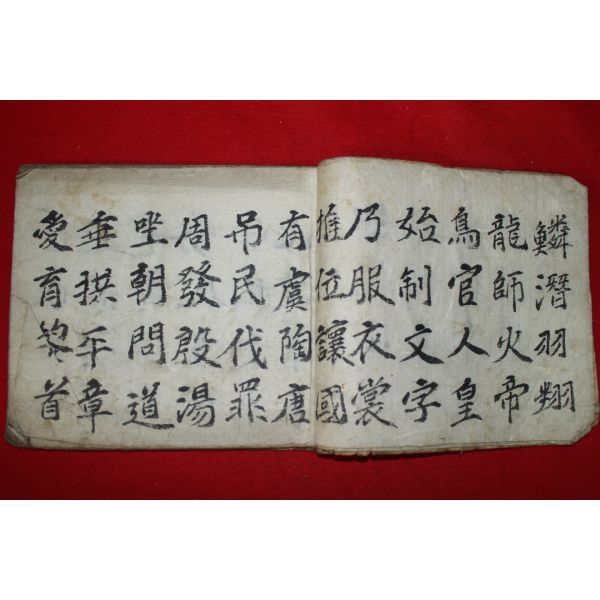 鱗潛羽翔
龍師火帝
鳥官人皇
始制文字
乃服衣裳
推位讓國
有虞陶唐
吊民伐罪
周發殷湯
坐朝問道
垂拱平章
愛育黎首